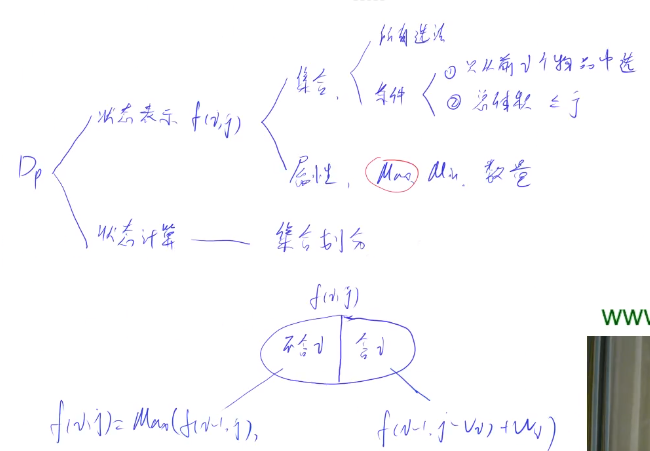 所有选法
集合、
条件
① 只从前i个物品中选
② 总体积 ≤ j
状态表示 f(i,j)
Dp
属性、Max Min、数量
状态计算 —— 集合划分
f(i,j)
不含i 含i
f(i,j)= Max(f(i-1,j), f(i-1,j-vi)+wi)
www